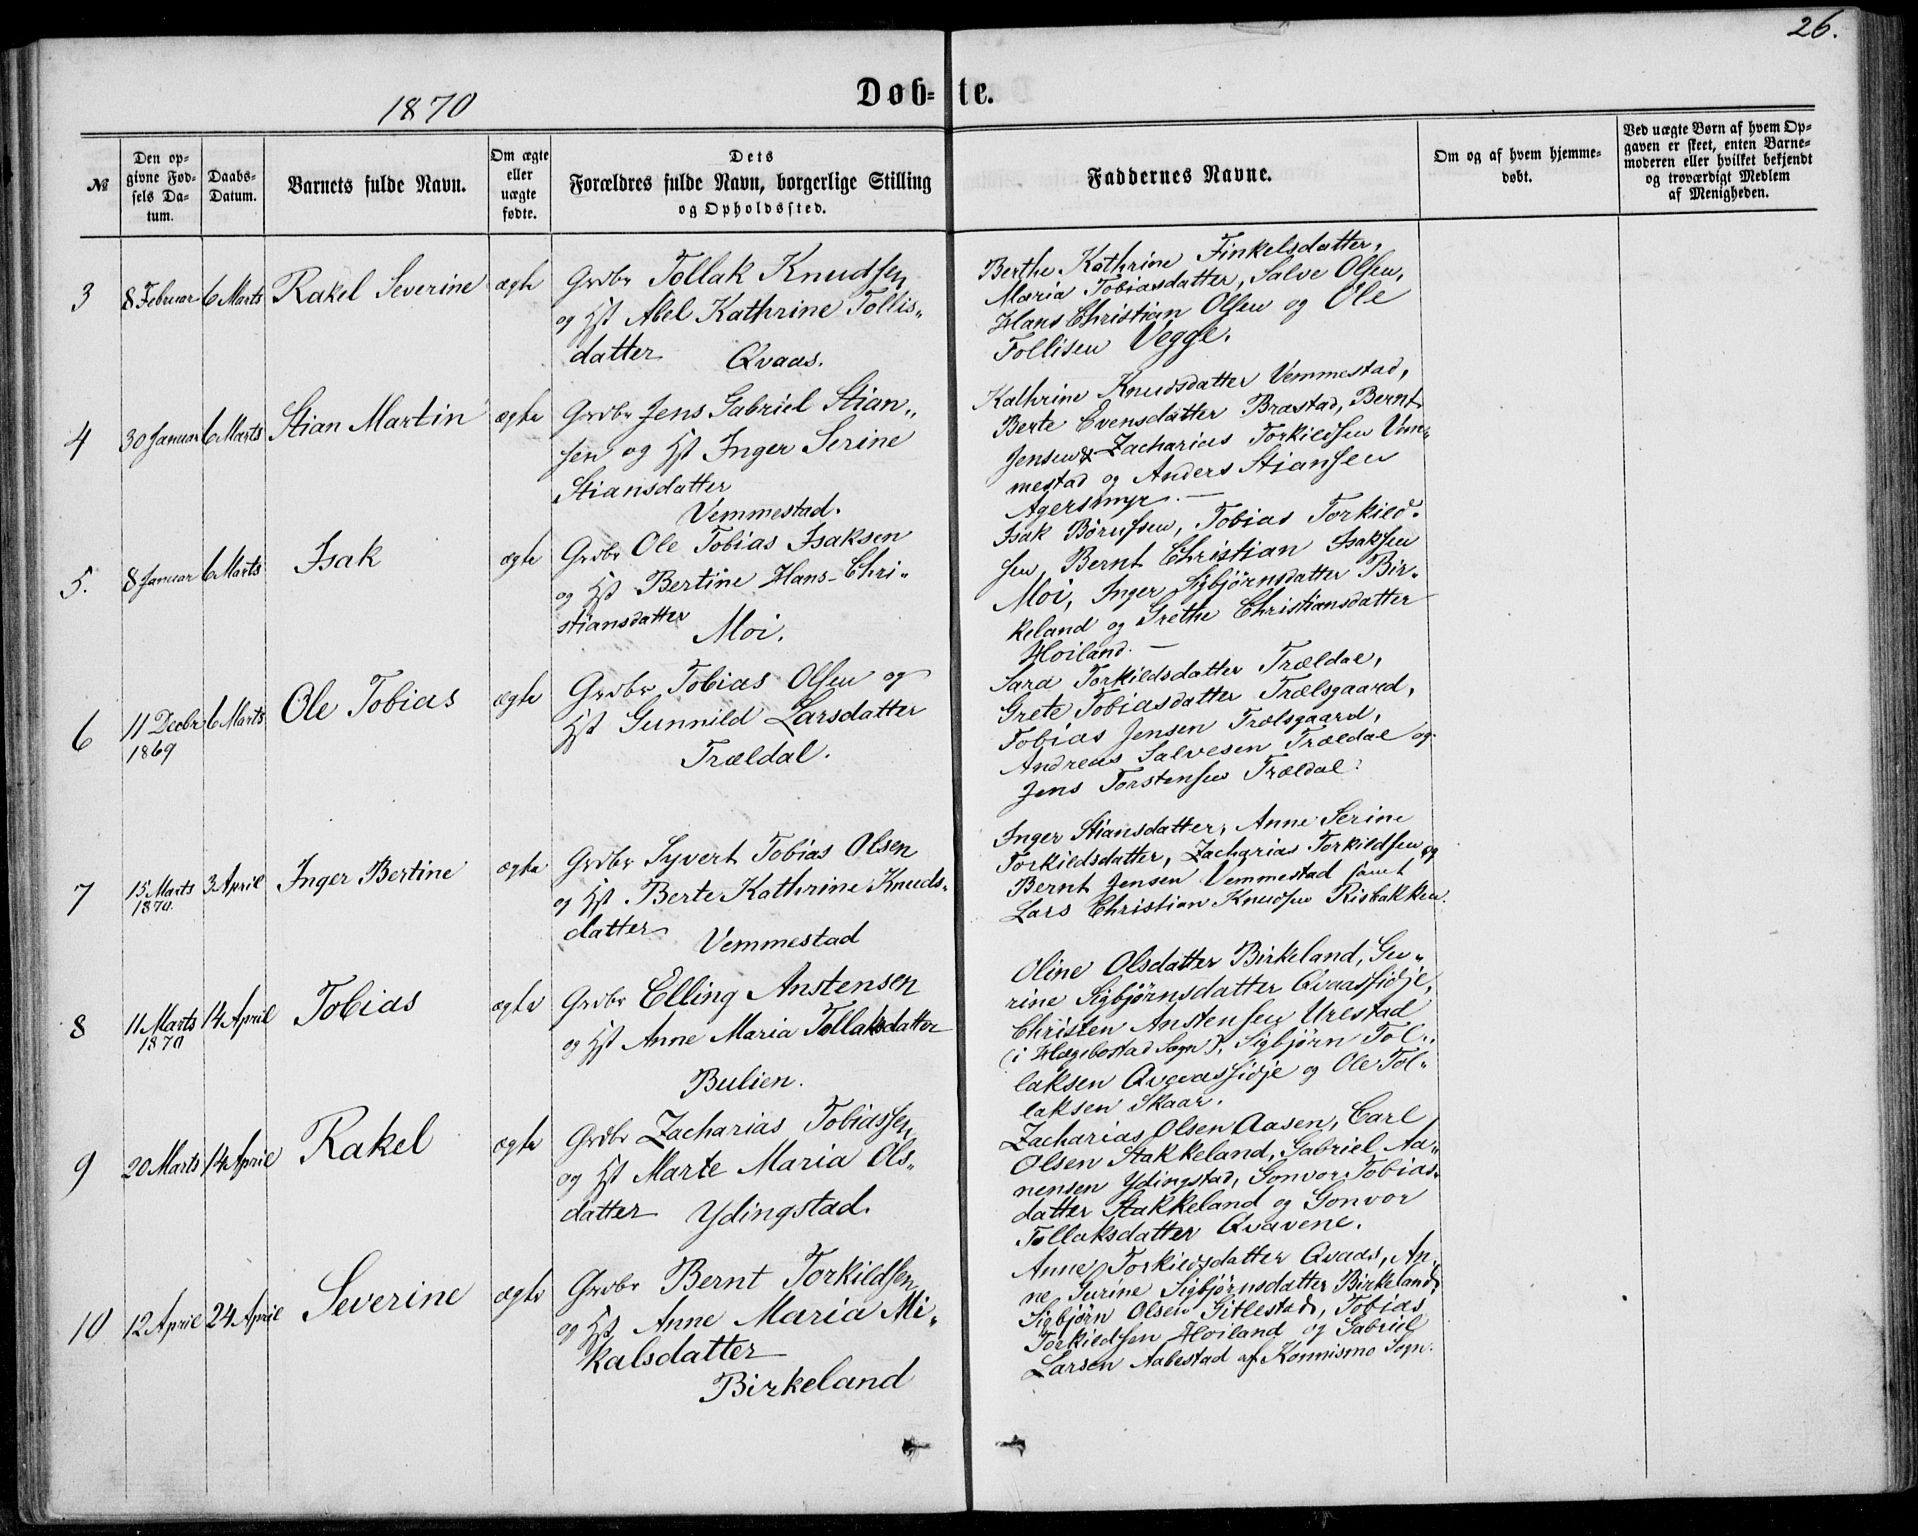 26.
1870
Døb-te.
№
Den op-
givne Fød-
sels Da-
tum.
Daabs-
Datum.
Barnets fulde Navn.
Om ægte
eller
uægte
fødte.
Dets
Forældres fulde Navn, borgerlige Stilling
og Opholdssted.
Faddernes Navne.
Om og af hvem hjemme-
døbt.
Ved uægte Børn af hvem Op-
gaven er skeet, enten Barne-
moderen eller hvilket bekjendt
og troværdigt Medlem
af Menigheden.
3
8 Februar
6 Marts
Rakel Severine
ægte
Grdbr Tollak Knudsen
og Hst Abel Kathrine Tollis„
datter Qvaas.
Berthe Kathrine Finkelsdatter,
Maria Tobiasdatter, Salve Olsen,
Hans Christian Olsen og Ole
Tollisen Vegge.
4
30 Januar
6 Marts
Stian Martin
ægte
Grdbr Jens Gabriel Stian„
sen og Hst Inger Serine
Stiansdatter
Vemmestad.
Kathrine Knudsdatter Vemmestad,
Berte Evensdatter Brastad, Bernt
Jensen & Zacharias Torkildsen Vem„
mestad og Anders Stiansen
Agersmyr. —
5.
8 Januar
6 Marts
Isak
ægte
Grdbr Ole Tobias Isaksen
og Hst Bertine Hans-Chri„
stiansdatter
Moi.
Isak Børufsen, Tobias Torkild„
sen, Bernt Christian Isaksen
Moi, Inger Sigbjørnsdatter Bir„
keland og Grethe Christiansdatter
Høiland. —
6
11 Decbr
1869
6 Marts
Ole Tobias
ægte
Grdbr Tobias Olsen og
Hst Gunnild Larsdatter
Trældal.
Sara Torkildsdatter Trældal,
Grete Tobiasdatter Trælsgaard,
Tobias Jensen Trælsgaard,
Andreas Salvesen Trældal og
Jens Torstensen Trældal.
7
15 Marts
1870.
3 April
Inger Bertine
ægte
Grdbr Syvert Tobias Olsen
og Hst Berte Kathrine Knuds„
datter Vemmestad
Inger Stiansdatter, Anne Serine
Torkildsdatter, Zacharias Torkildsen og
Bernt Jensen Vemmestad samt
Lars Christian Knudsen Risbakken.
8
11 Marts
1870
14 April
Tobias
ægte
Grdbr Elling Anstensen
og Hst Anne Maria Tollaksdatter
Bulien.
Oline Olsdatter Birkeland, Gu„
rine Sigbjørnsdatter Qvaassidje,
Christen Anstensen Urestad
(i Hægebostad Sogn), Sigbjørn Tol„
laksen Qvaassidje og Ole Tol„
laksen Skaar.
9
20 Marts
14 April
Rakel
ægte
Grdbr Zacharias Tobiassen
og Hst Marte Maria Ols„
datter Ydingstad.
Zacharias Olsen Aasen, Carl
Olsen Stakkeland, Gabriel Aa„
nensen Ydingstad, Gonvor Tobias„
datter Stakkeland og Gonvor
Tollaksdatter Qvavene.
10
12 April
24 April
Severine
ægte
Grdbr Bernt Torkildsen
og Hst Anne Maria Mi„
kalsdatter
Birkeland
Anne Torkildsdatter Qvaas, An„
ne Gurine Sigbjørnsdatter Birkeland,
Sigbjørn Olsen Gitlestad, Tobias
Torkildsen Høiland og Gabriel
Larsen Aabestad af Konnismo Sogn.